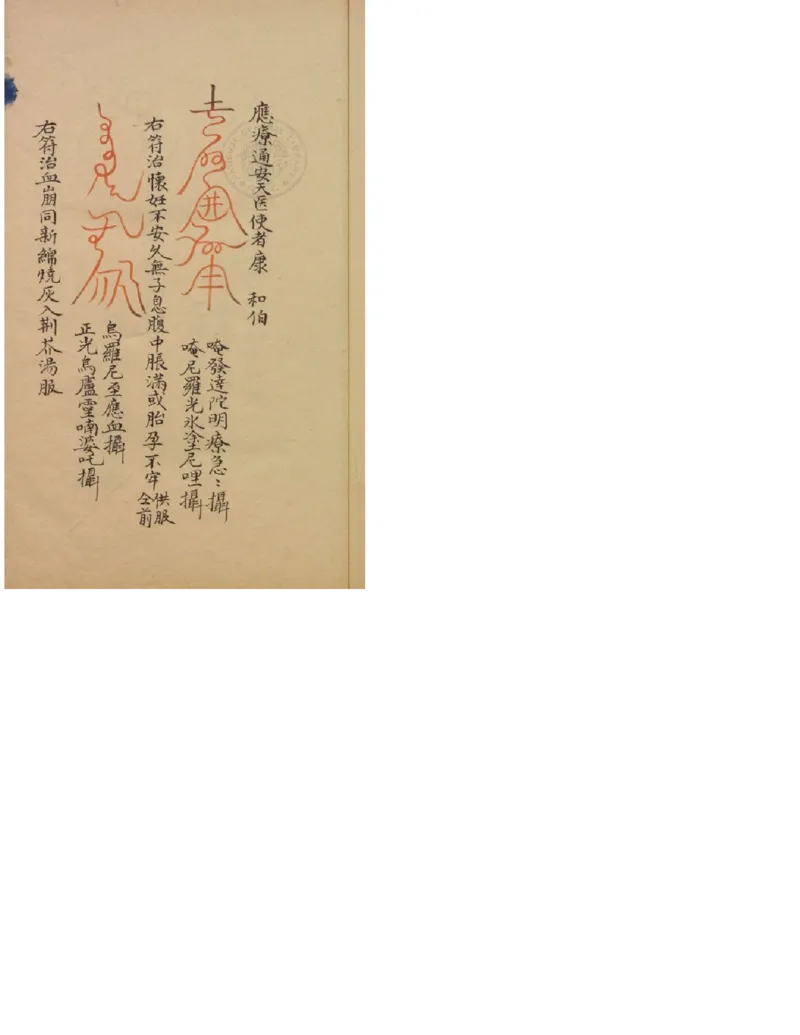 應療通安天医使者康　和伯
唵發達陀明療急〻攝
唵尼羅光水塗尼哩攝
右符治懷妊不安久無子息腹中脹滿或胎孕不牢供服仝前
烏羅尼至應血攝
正光烏廬霊喃婆吒攝
右符治血崩同新綿燒灰入荆芥湯服